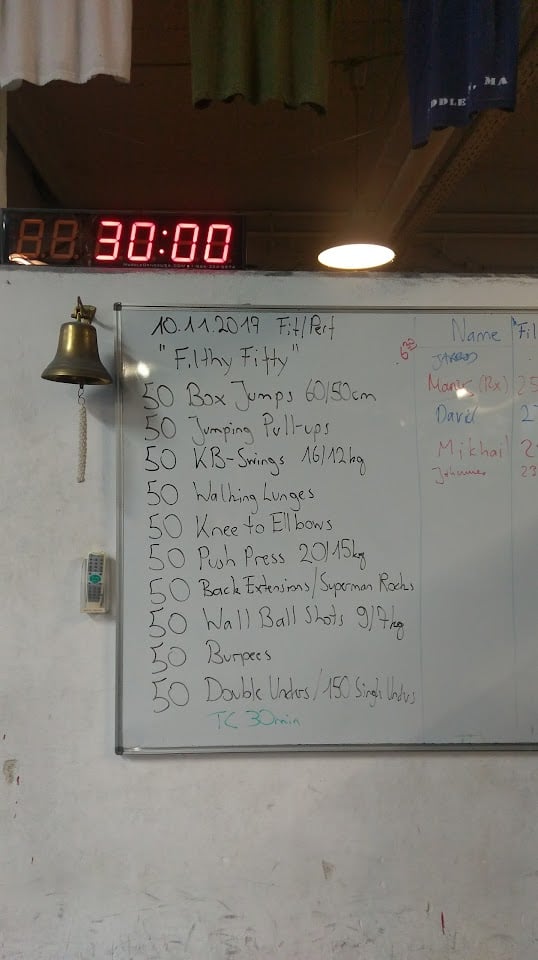 MA
DDLE
30:00
10.11.2019 Fit/Perf
"Filthy Fifty"
50 Box Jumps 60/50cm
50 Jumping Pull-ups
50 KB-Swings 16/12kg
50 Walking Lunges
50 Knee to Ellbows
50 Push Press 20/15kg
50 Back Extensions/Superman Rocks
50 Wall Ball Shots 9/7kg
50 Burpees
50 Double Unders/150 Single Unders
TC 30min
Name Fil
630
(Rx) 25
David 2
Mikhail 2
Johannes 23